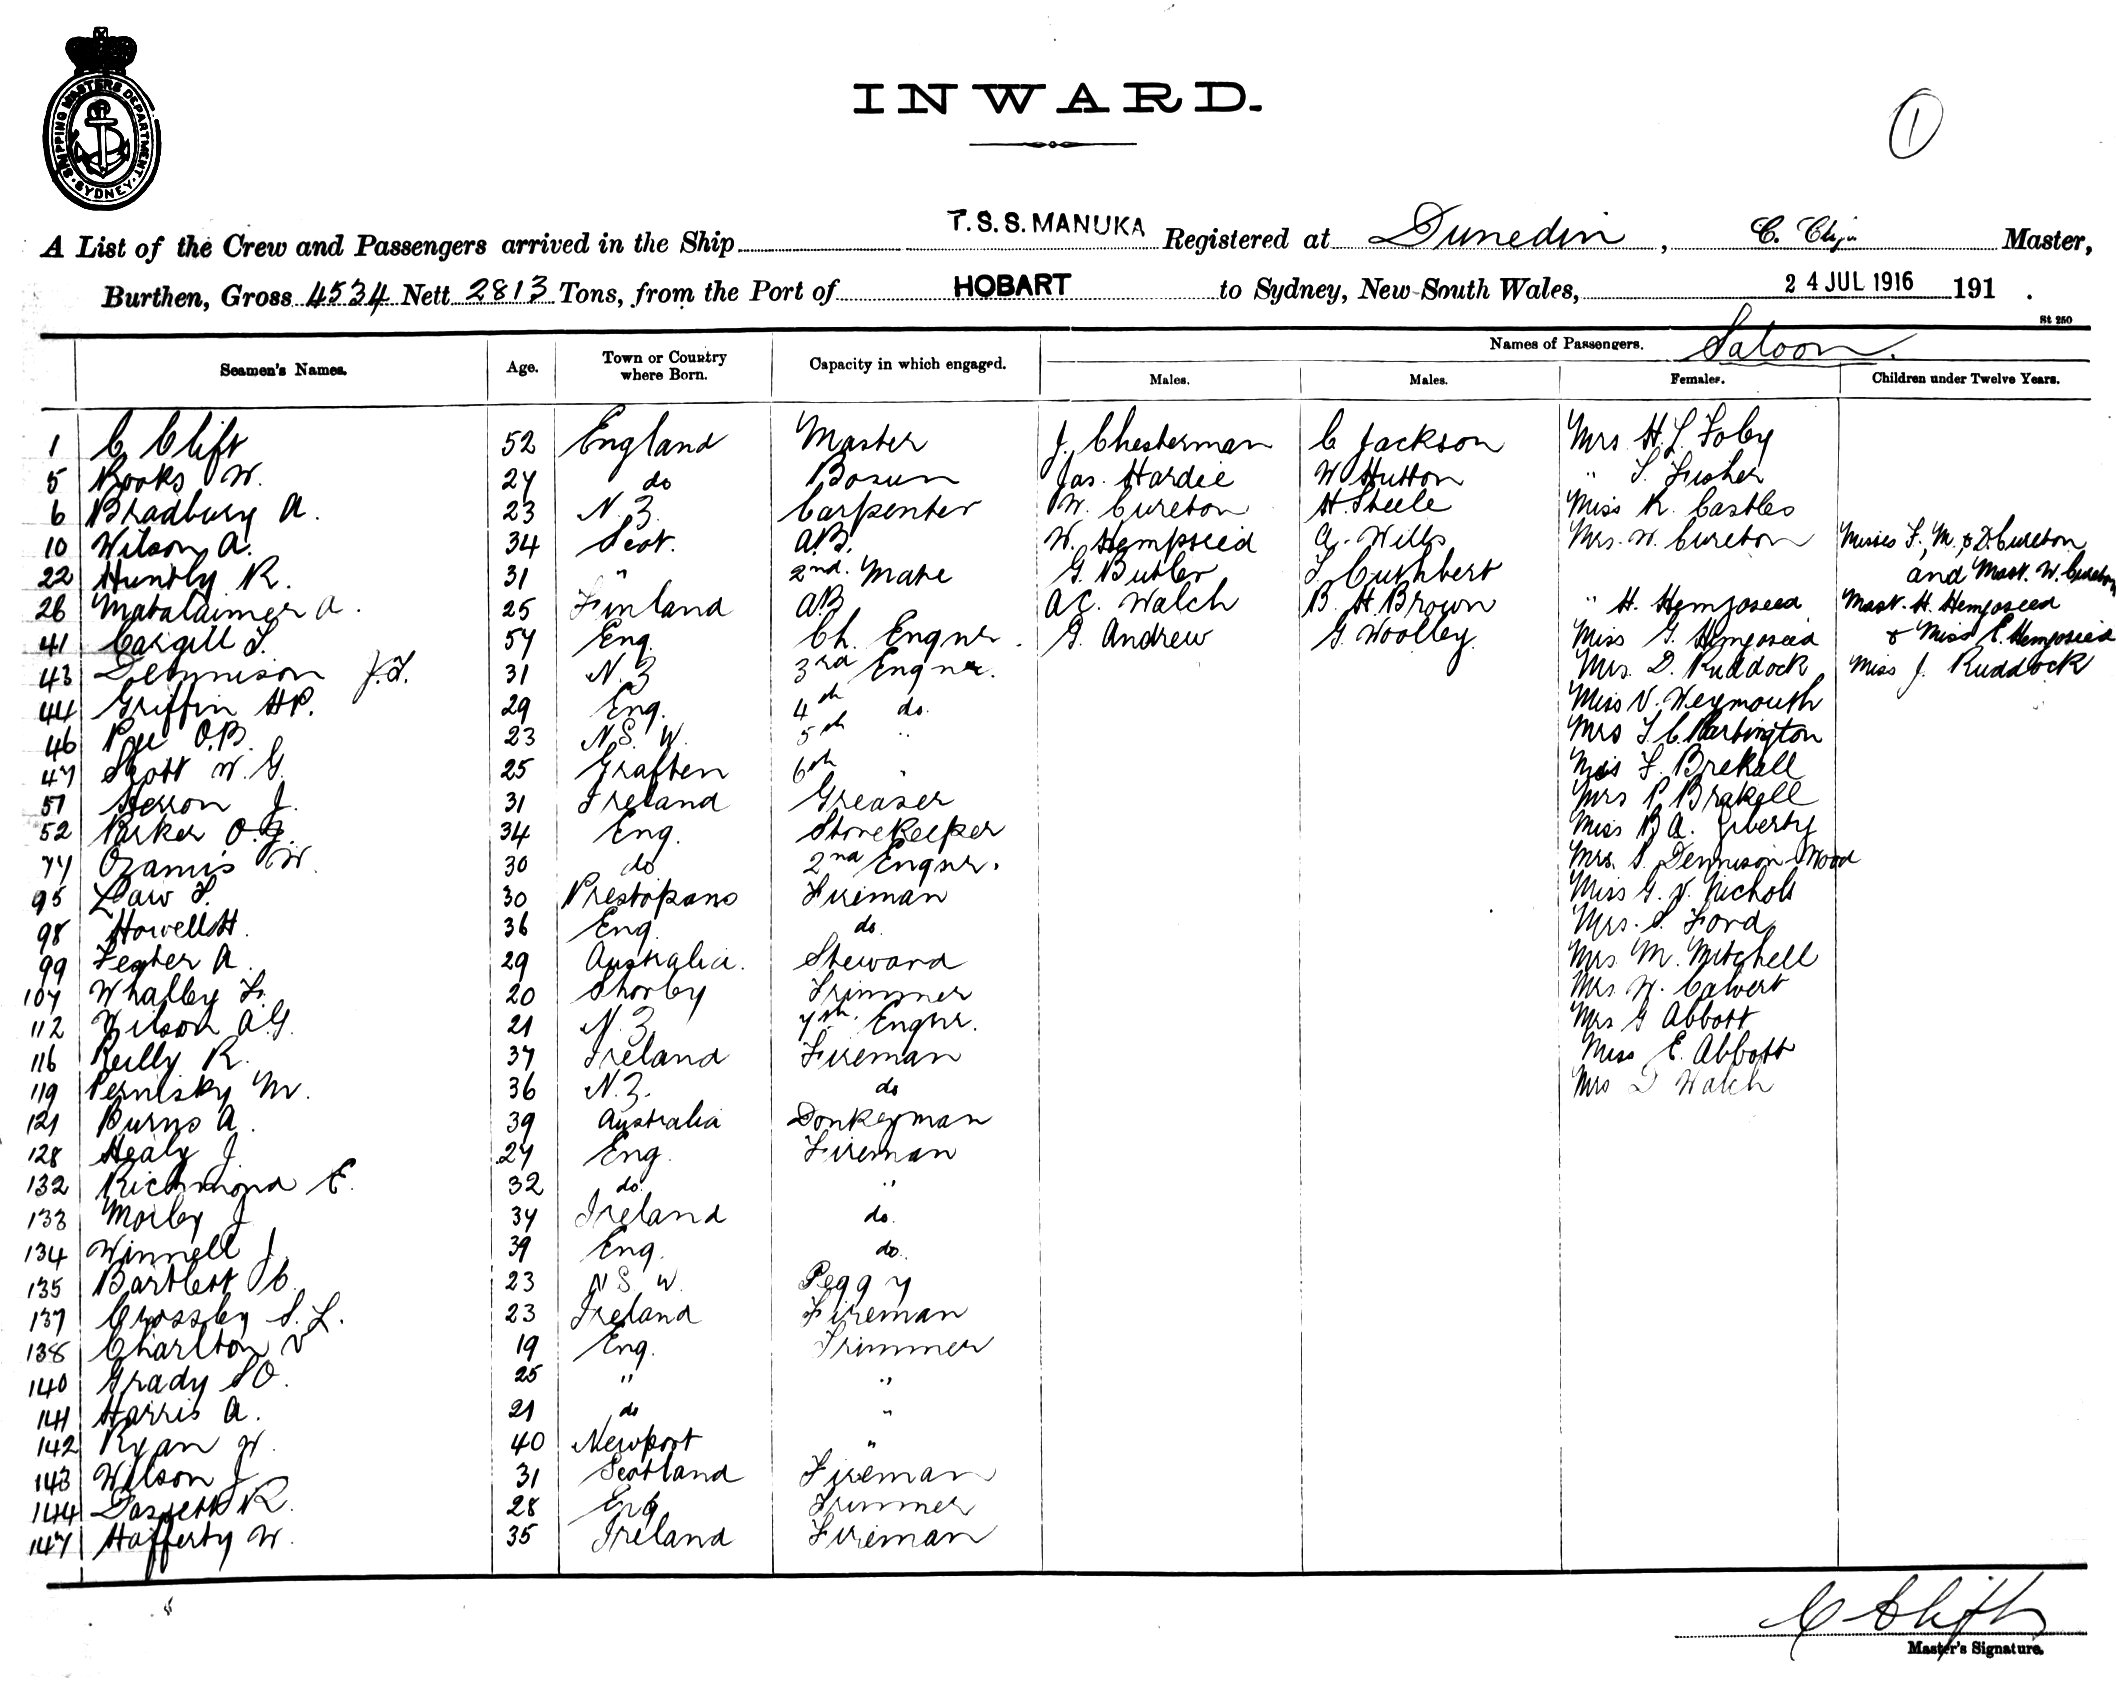 SHIPPING MASTERS DEPARTMENT. SYDNEY.
INWARD.
1
A List of the Crew and Passengers arrived in the Ship T.S.S. MANUKA Registered at Dunedin, C. Master,
Burthen, Gross 4534 Nett 2813 Tons, from the Port of HOBART to Sydney, New South Wales, 24 JUL 1916 191 .
St 250
Seamen's Names. Age. Town or Country where Born. Capacity in which engaged. Names of Passengers. Saloon.
Males. Males. Females. Children under Twelve Years.
1 C Clift 52 England Master J. Chesterman C Jackson Mrs H. L. Foby
5 Rooks W. 27 do Bosun Jas. Hardie W Hutton " S. Fisher
6 Bradbury A. 23 N.Z Carpenter W. Cureton H. Steele Miss R. Castles
10 Wilson A. 34 Scot. A.B. W. Hempseed A. Wills Mrs. W. Cureton Misses F, M. & D. Cureton
22 Huntly R. 31 " 2nd. Mate G. Butler Cuthbert and Mast. W. Cureton
26 Matalaimer A. 25 Finland A.B A.C. Walch B. H. Brown " H. Hempseed Mast. H. Hempseed
41 Cargill 57 Eng. Ch. Engnr. G. Andrew G. Woolley Miss G. Hempseed & Miss E. Hempseed
43 Dennison J.F. 31 N.Z 3rd Engnr. Mrs. D. Ruddock Miss J. Ruddock
44 Griffin H.P. 29 Eng. 4th do. Miss V. Weymouth
46 Ree O.B. 23 N.S.W. 5th " Mrs T. C. Partington
47 Scott W. G. 25 Graften 6th " Miss F. Brekall
51 Herron J. 31 Ireland Greaser Mrs P Brakell
52 Parker O. G. 34 Eng. Storekeeper Miss B A. Liberty
77 Ozamis W. 30 do 2nd Engnr. Mrs. S. Dennison-Wood
95 Law 30 Prestopans Fireman Miss G. V. Nichols
98 Howell H. 36 Eng. do. Mrs. S. Ford
99 Fegter A. 29 Australia. Steward Mrs M. Mitchell
107 Whalley F. 20 Shorby Trimmer Mrs W. Calvert
112 Wilson A.G. 21 N.Z 7th. Engnr. Mrs G Abbott
116 Reilly R. 37 Ireland Fireman Miss E. Abbott
119 Pernisky M. 36 N.Z. do Mrs Walch
121 Burns A. 39 Australia Donkeyman
128 Healy J. 27 Eng. Fireman
132 Richmond E. 32 do. "
133 Morley J 34 Ireland do.
134 Winnell J. 39 Eng. do.
135 Bartlett C. 23 N S W. Peggy
137 Crossley S. L. 23 Ireland Fireman
138 Charlton V 19 Eng. Trimmer
140 Grady S O. 25 " "
141 Harris A. 21 do "
142 Ryan W. 40 Newport "
143 Wilson J 31 Scotland Fireman
144 R. 28 Eng Trimmer
147 Hafferty W. 35 Ireland Fireman
C Clift
Master's Signature.